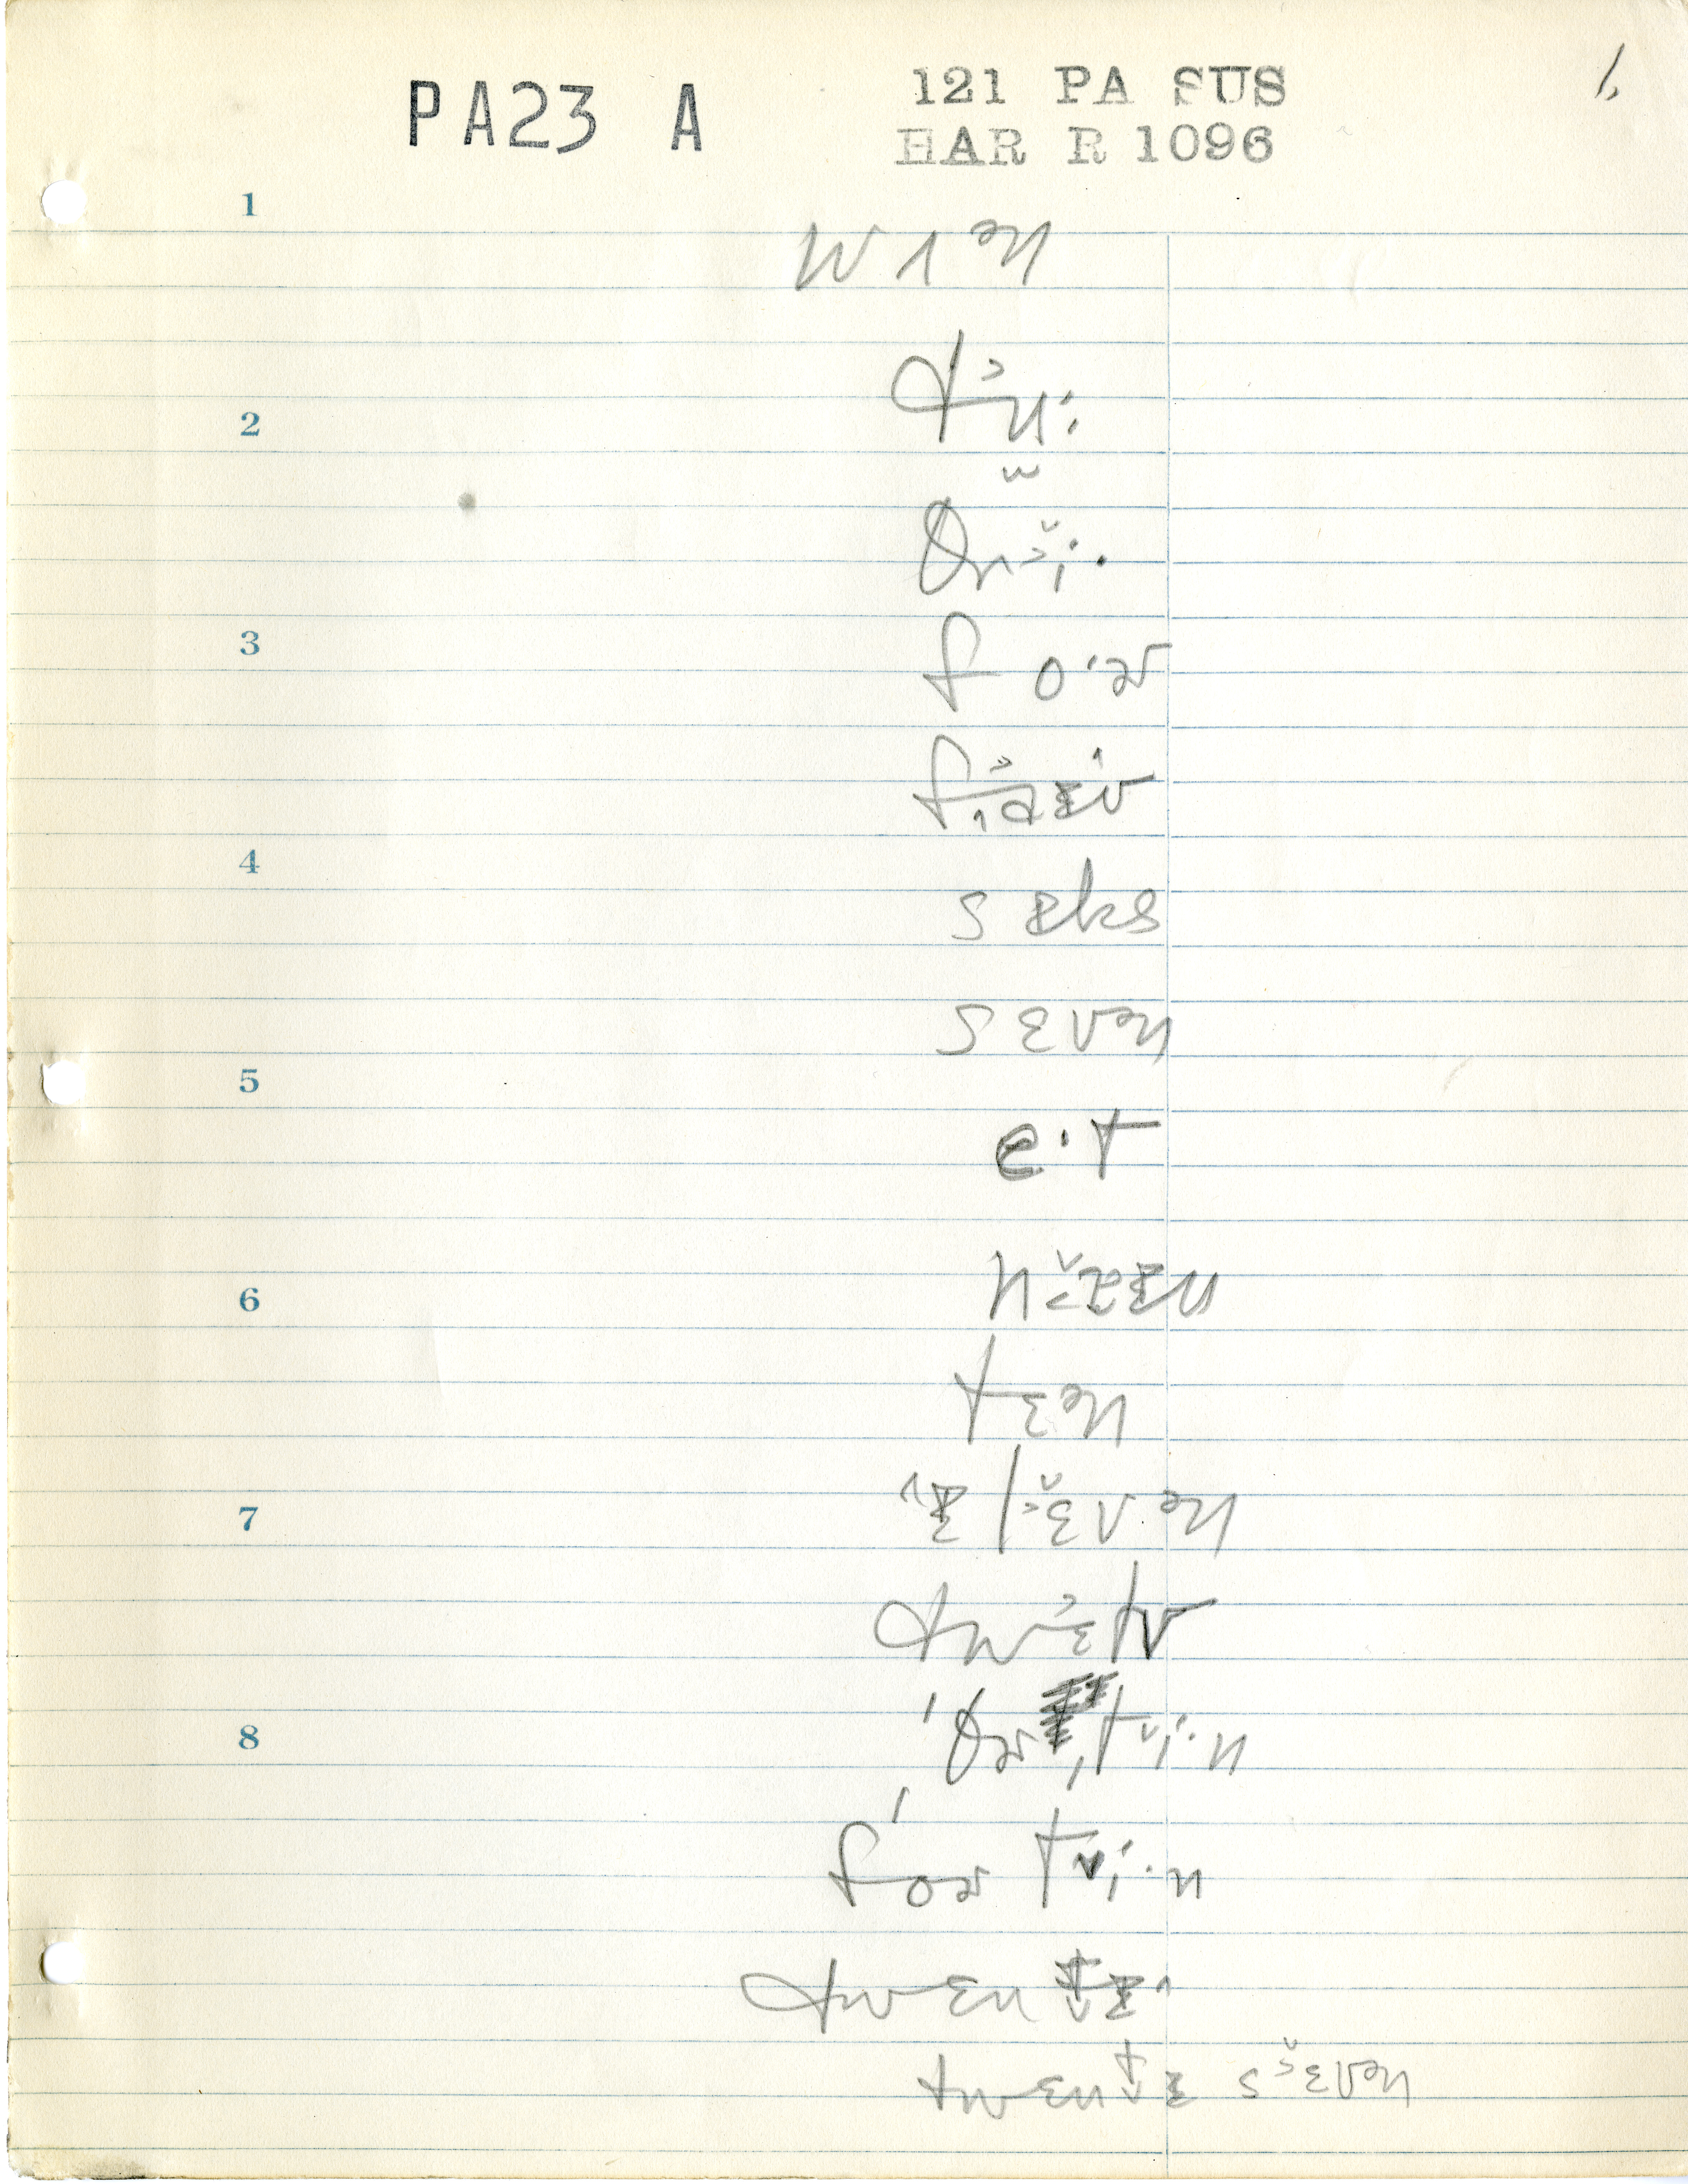 PA23 A
121 PA SUS
HAR R 1096
1.
1
wʌən
tu:
2
θri:
3
fo·ɚ
faɪv
4
sɪks
sɛvən
5
e·t
6
naɪn
tɛən
7
ɪlɛvən
twɛlv
8
'θɚˌti·n
fɔɚti·n
twɛntɪ
twɛntɪ sɛvən